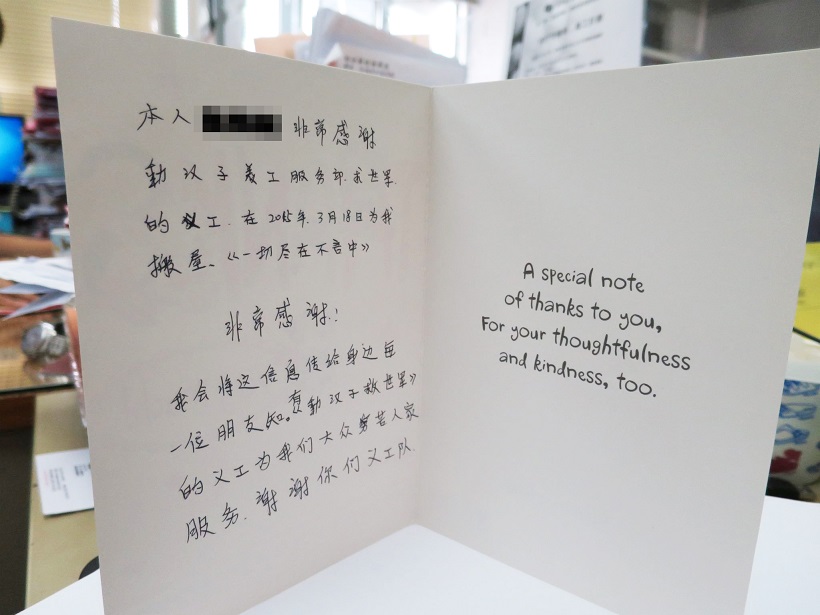 本人 非常感谢
動汉子義工服务部.救世军.
的义工.在2015年.3月18日为我
搬屋、《一切尽在不言中》
非常感谢!
我会将这信息传给身边每
一位朋友知。有動汉子救世军》
的义工为我们大众穷苦人家
服务.谢谢你们义工队.
A special note
of thanks to you,
For your thoughtfulness
and kindness, too.